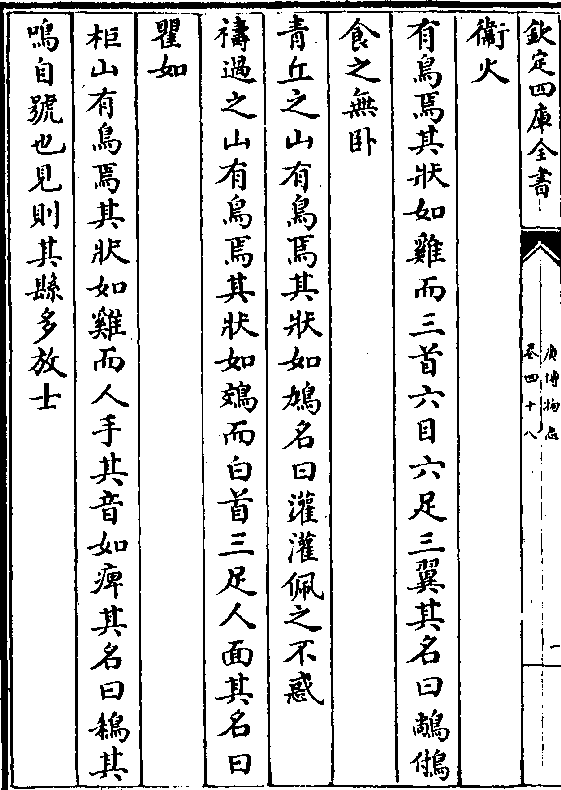 欽定四庫全書
廣博物志
卷四十八
一
衞火
有鳥焉其狀如雞而三首六目六足三翼其名曰
食之無卧
青丘之山有鳥焉其狀如鳩名曰灌灌佩之不惑
禱過之山有鳥焉其狀如鵁而白首三足人面其名曰
瞿如
柜山有鳥焉其狀如雞而人手其音如痺其名曰鴸其
鳴自號也見則其縣多放士